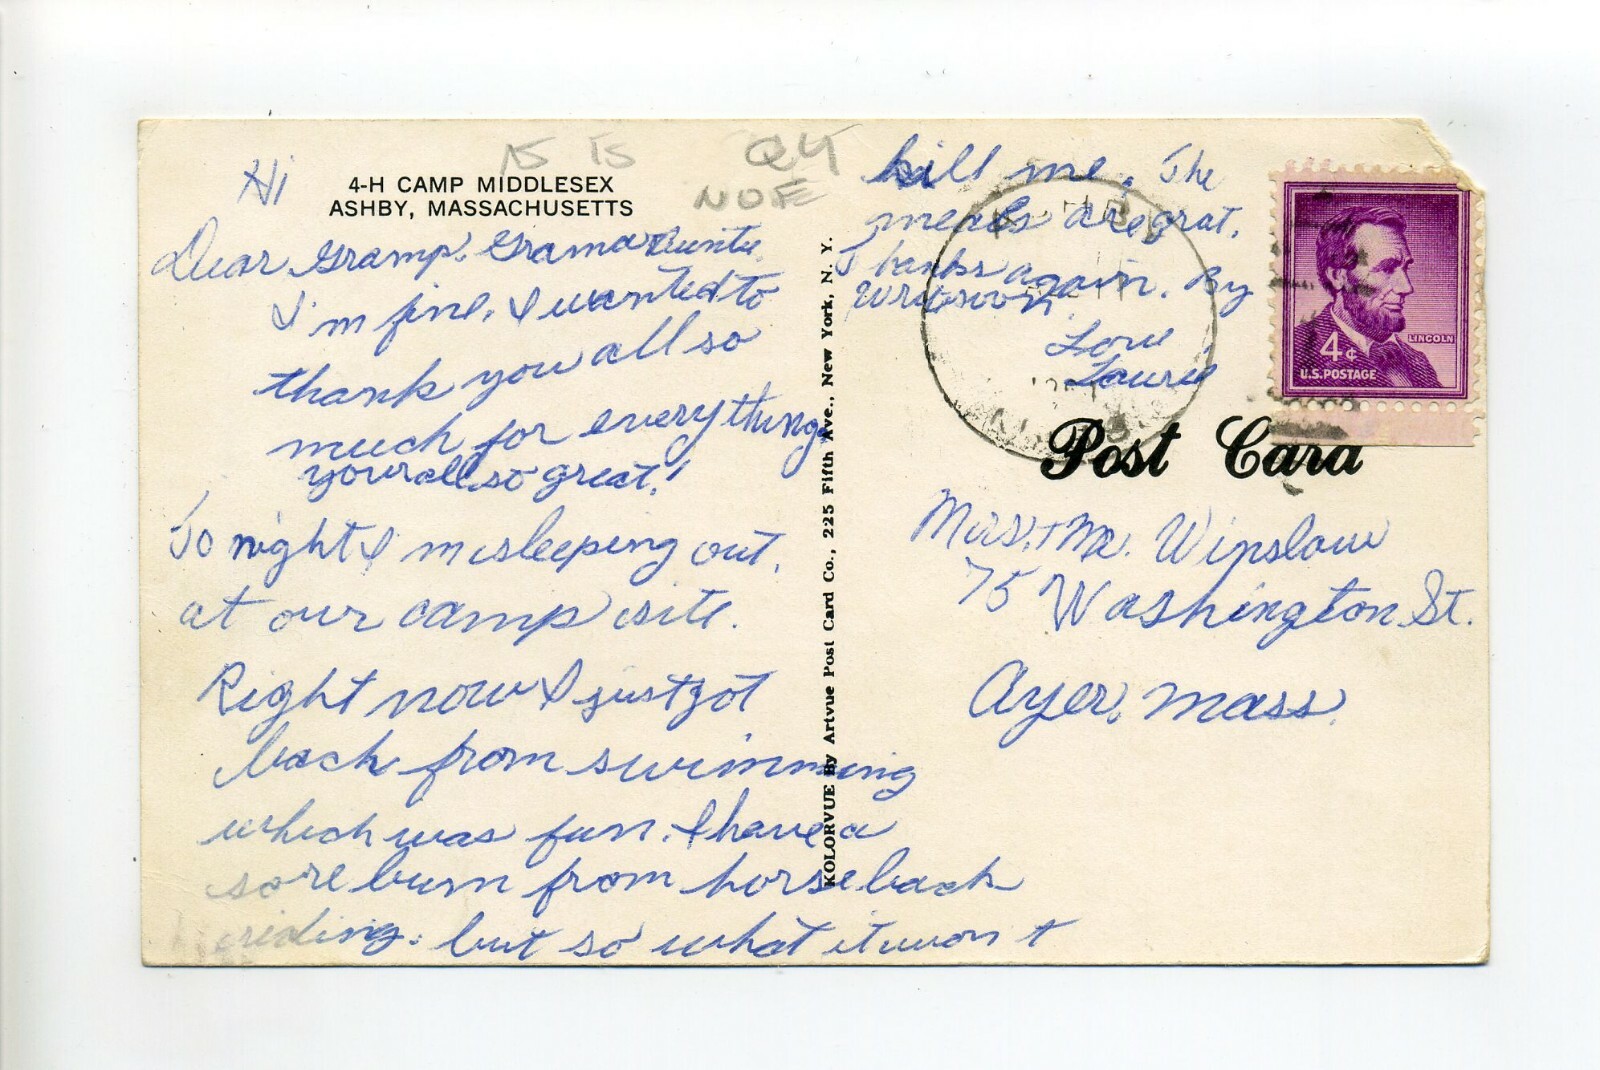 15 15
Q4
NOE
Hi
4-H CAMP MIDDLESEX
ASHBY, MASSACHUSETTS
Dear Gramp, Grama & Auntie,
I'm fine. I wanted to
thank you all so
much for everything.
your all so great!
To night I'm sleeping out,
at our camp site.
Right now I just got
back from swimming
which was fun. I have a
sore burn from horse back
riding. but so what it won't
kill me. The
meals are grat.
Thanks again. By
Write soon
Love
Laurie
KOLORVUE By Artvue Post Card Co., 225 Fifth Ave., New York, N. Y.
4¢
LINCOLN
U.S. POSTAGE
Post Card
Mrs. + Mr. Winslow
75 Washington St.
Ayer, Mass.